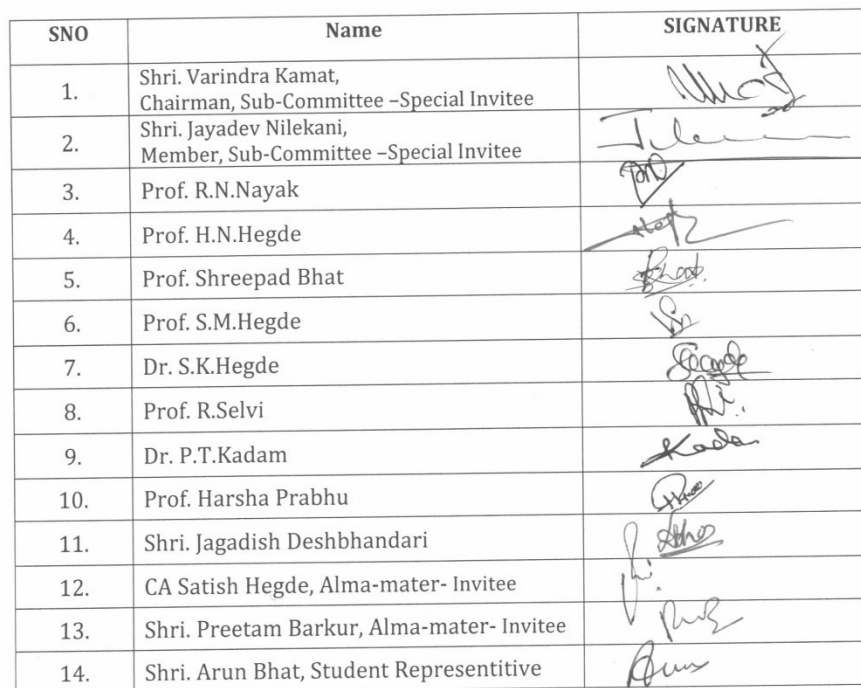 SNO Name SIGNATURE
1. Shri. Varindra Kamat,
Chairman, Sub-Committee –Special Invitee
2. Shri. Jayadev Nilekani,
Member, Sub-Committee –Special Invitee
3. Prof. R.N.Nayak
4. Prof. H.N.Hegde
5. Prof. Shreepad Bhat
6. Prof. S.M.Hegde
7. Dr. S.K.Hegde
8. Prof. R.Selvi
9. Dr. P.T.Kadam
10. Prof. Harsha Prabhu
11. Shri. Jagadish Deshbhandari
12. CA Satish Hegde, Alma-mater- Invitee
13. Shri. Preetam Barkur, Alma-mater- Invitee
14. Shri. Arun Bhat, Student Representitive